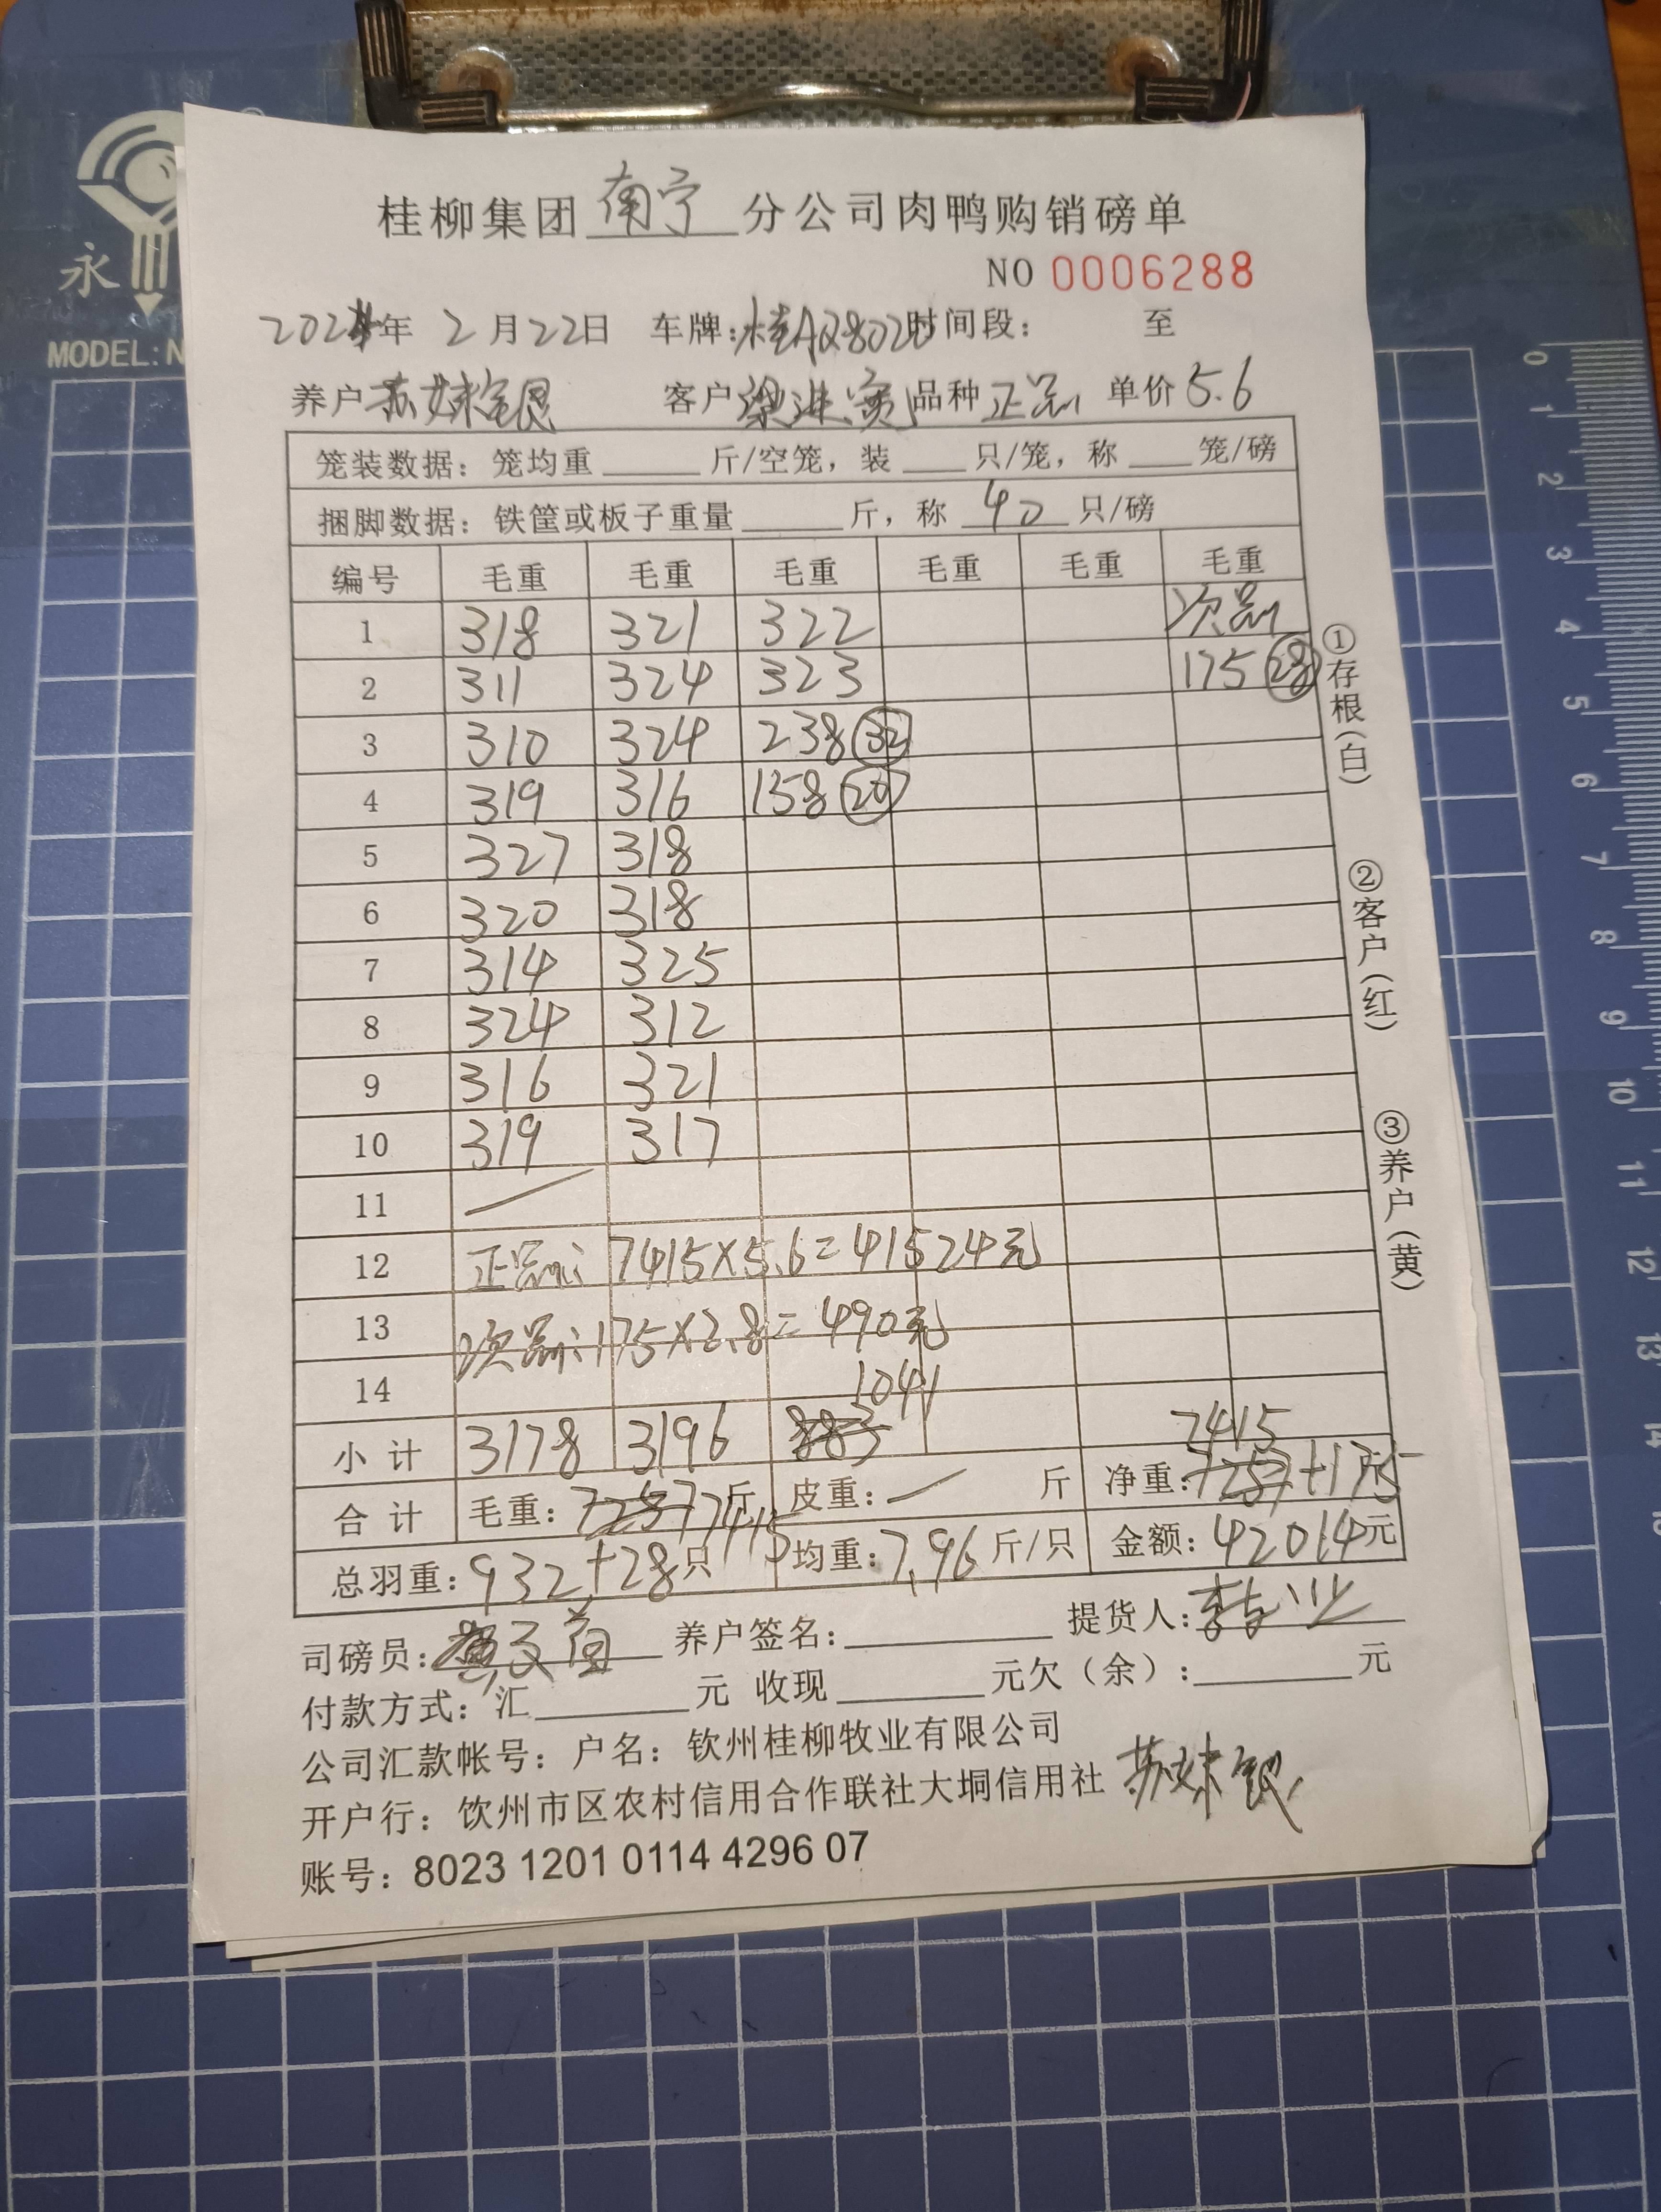 永
MODEL:N
桂柳集团 南宁 分公司肉鸭购销磅单
NO 0006288
2024年 2月22日 车牌:桂AQ802 时间段: 至
养户 苏妹银 客户 梁进宾 品种 正品 单价 5.6
笼装数据: 笼均重 斤/空笼, 装 只/笼, 称 笼/磅
捆脚数据: 铁筐或板子重量 斤, 称 40 只/磅
编号 毛重 毛重 毛重 毛重 毛重 毛重
1 318 321 322 次品
2 311 324 323 175 28
3 310 324 238 32
4 319 316 158 20
5 327 318
6 320 318
7 314 325
8 324 312
9 316 321
10 319 317
11 /
12 正品: 7415×5.6=41524元
13 次品: 175×2.8=490元
14 1041
小计 3178 3196 883 7415
合计 毛重: 7257 7415 斤 皮重: / 斤 净重: 7257+175 斤
总羽重: 932+28只 均重: 7.96 斤/只 金额: 42014元
司磅员: 养户签名: 提货人: 李业
付款方式: 汇 元 收现 元欠(余): 元
公司汇款帐号: 户名: 钦州桂柳牧业有限公司
开户行: 饮州市区农村信用合作联社大垌信用社 苏妹银
账号: 8023 1201 0114 4296 07
①存根(白)
②客户(红)
③养户(黄)
0
1
2
3
4
5
6
7
8
9
10
11
12
13
14